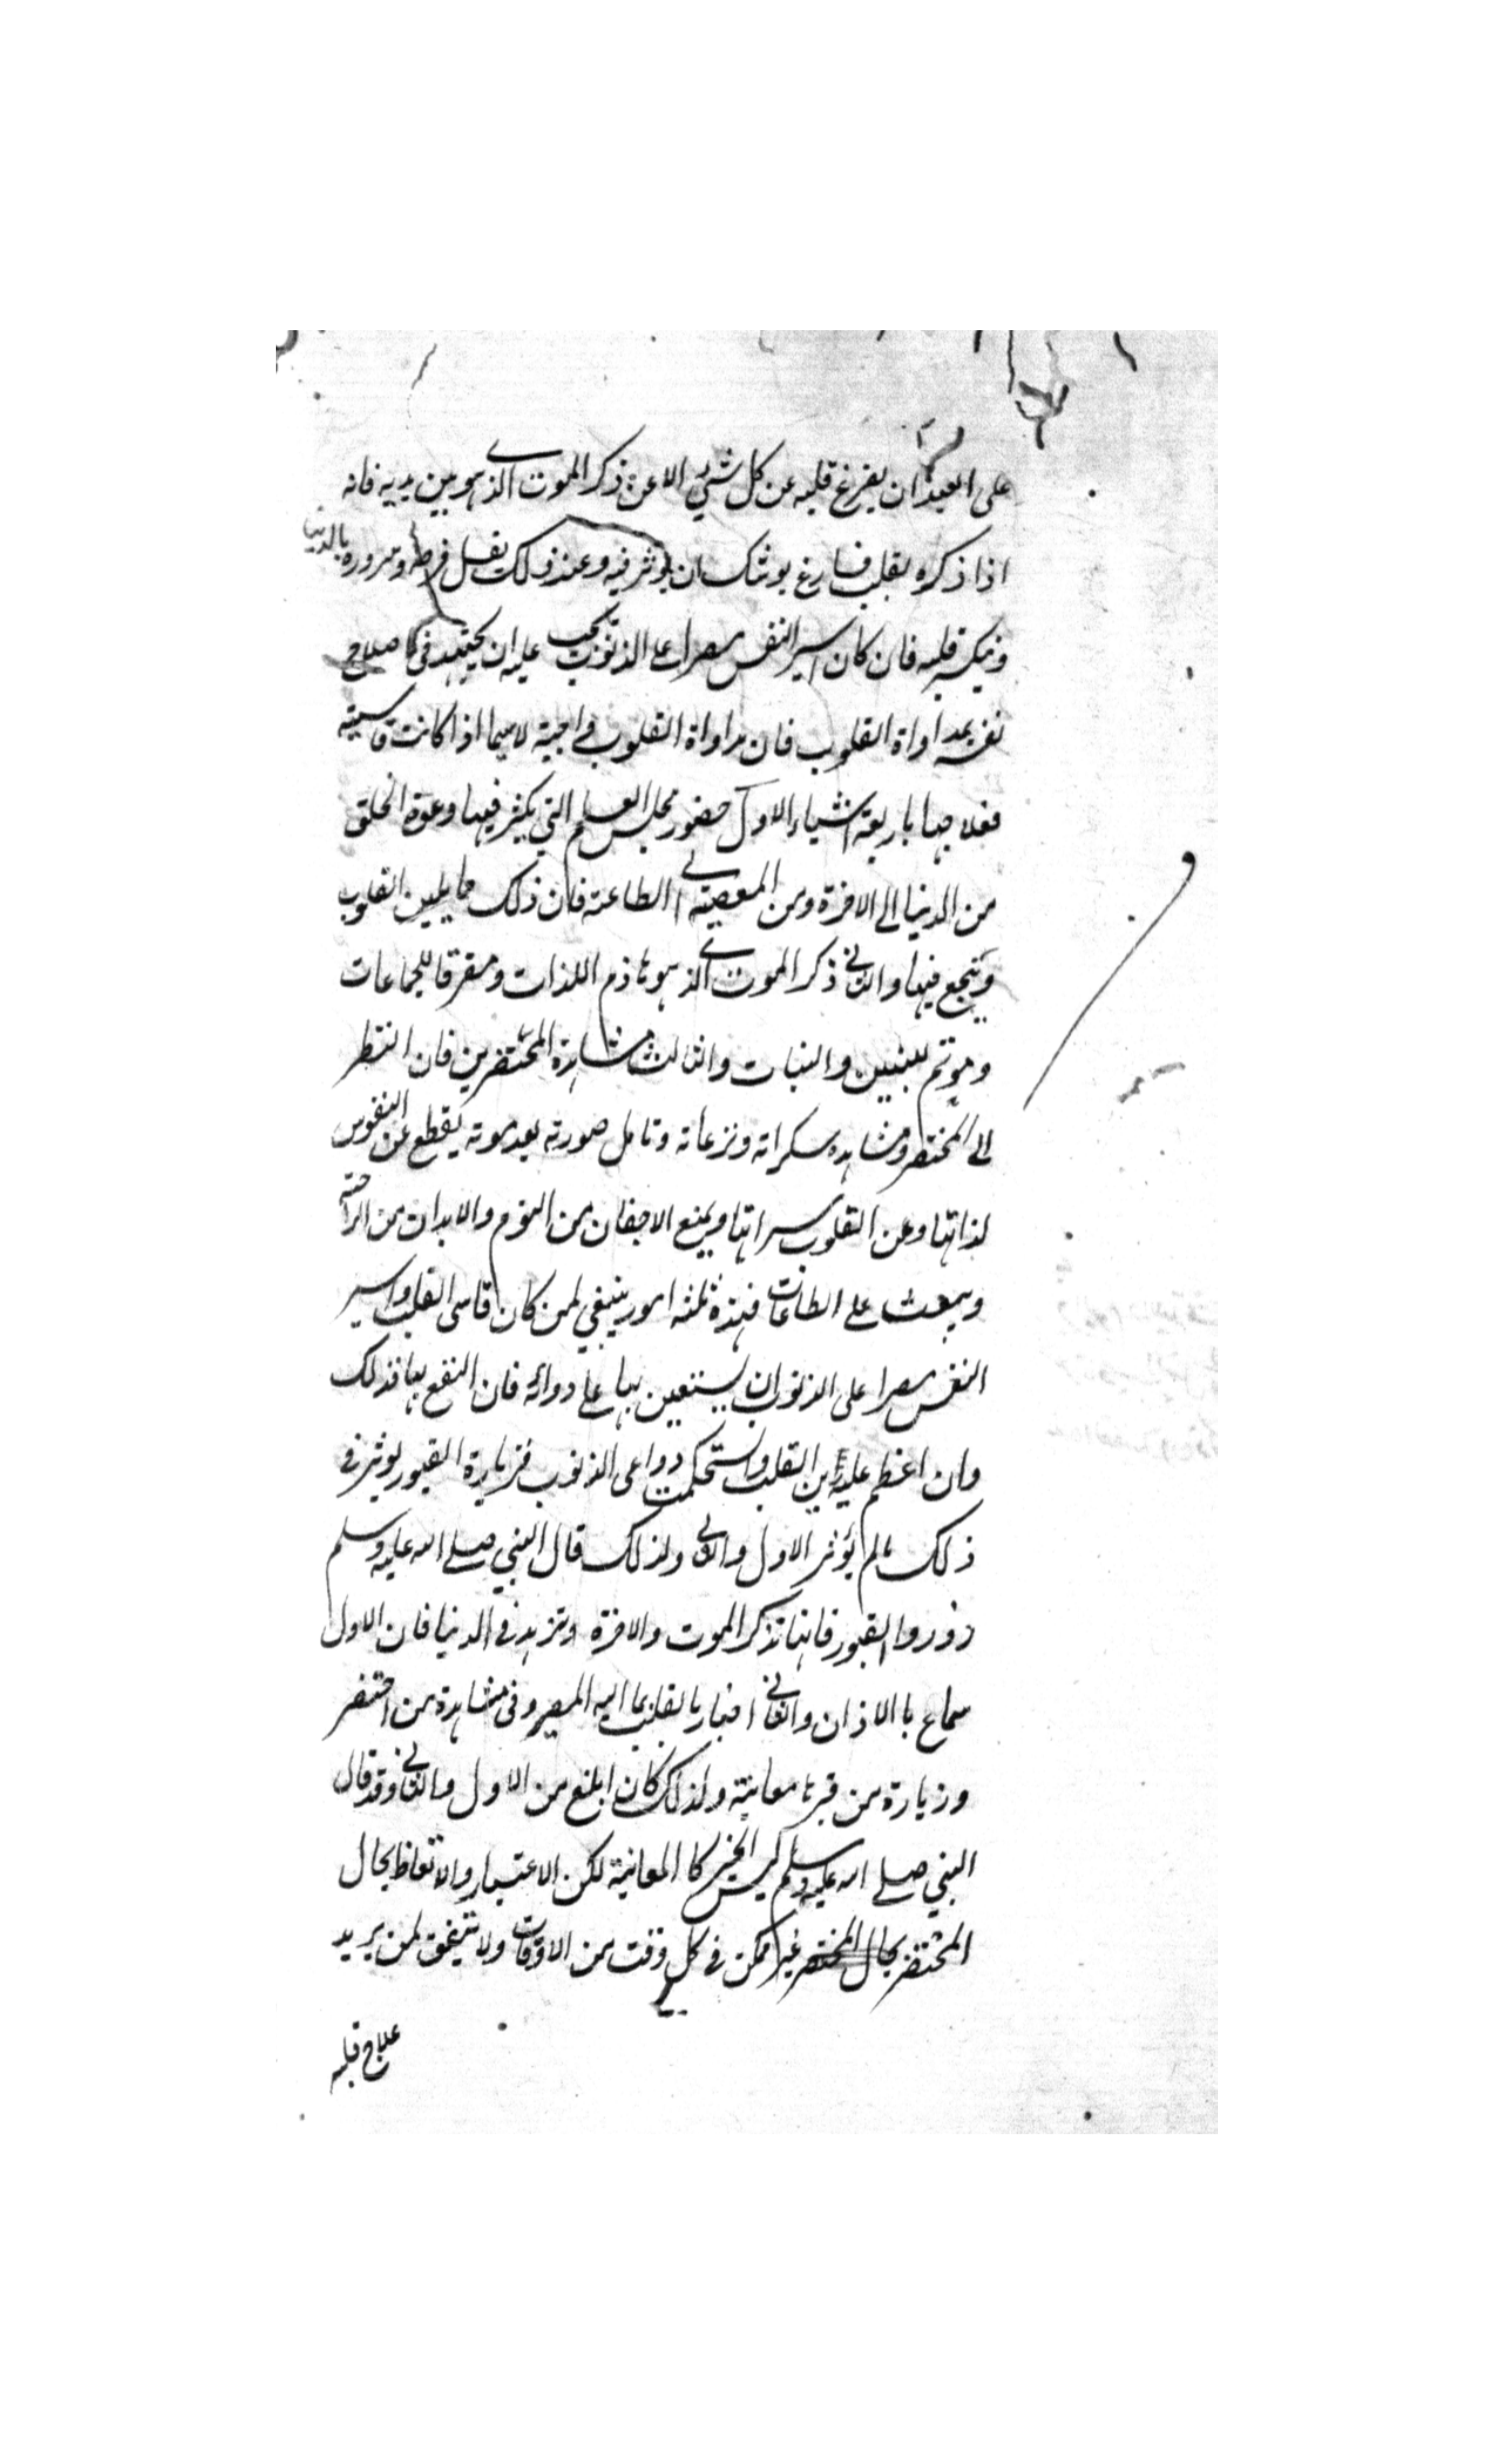 على العبد ان يفرغ قلبه عن كل شئ الا عن ذكر الموت الذى هو بين يديه فانه
اذا ذكره بقلب فارغ يوشك ان يؤثر فيه وعند ذلك يقل فرحه وسروره بالدنيا
وينكسر قلبه فان كان اسير النفس مصرا على الذنوب يجب عليه ان يجتهد فى اصلاح
نفسه بمداواة القلوب فان مداواة القلوب واجبة لا سيما اذا كانت قاسية
فعلاجها باربعة اشياء الاول حضور مجلس العلم التي يكثر فيها دعوة الخلق
من الدنيا الى الاخرة ومن المعصية الى الطاعة فان ذلك مما يلين القلوب
وينجع فيها والثانى ذكر الموت الذى هو هاذم اللذات ومفرقا للجماعات
وموتم للبنين والبنات والثالث مشاهدة المحتضرين فان النظر
الى المحتضر ومشاهدة سكراته ونزعاته وتامل صورته بعد موته يقطع عن النفوس
لذاتها وعن القلوب مسراتها ويمنع الاجفان من النوم والابدان من الراحة
ويبعث على الطاعات فهذه ثلثة امور ينبغي لمن كان قاسى القلب واسير
النفس مصرا على الذنوب ان يستعين بها على دوائه فان النفع بها فذلك
وان اعظم عليه رين القلب واستحكمت دواعى الذنوب فزيارة القبور يؤثر فى
ذلك مالم يؤثر الاول والثانى ولذلك قال النبي صلى الله عليه وسلم
زوروا القبور فانها تذكر الموت والاخرة وتزهد فى الدنيا فان الاول
سماع با الاذان والثانى اخبار بالقلب بما اليه المصير وفى مشاهدة من احتضر
وزيارة من قبر ها معاينة ولذلك كان ابلغ من الاول والثانى وقد قال
النبي صلى الله عليه وسلم ليس الخبر كا المعاينة لكن الاعتبار والاتعاظ بحال
المحتضر بحال المحتضر غير ممكن فى كل وقت من الاوقات ولا يتفق لمن يريد
علاج قلبه